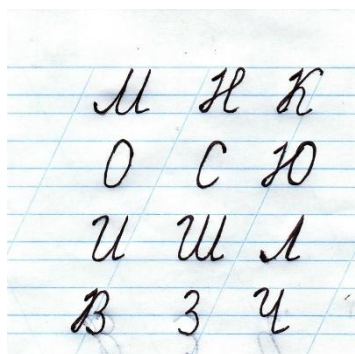 М Н К
О С Ю
И Ш Л
В З Ч